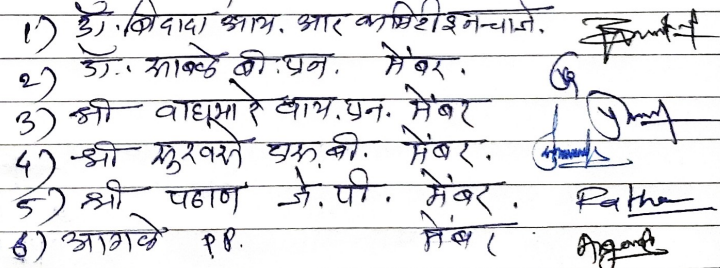 1) डॉ. बिदादा आय. आर कमिटी इनचार्ज.
2) डॉ. साबळे बी. एन. मेंबर.
3) श्री वाघमारे वाय. एन. मेंबर
4) श्री सुरवसे एस. बी. मेंबर.
5) श्री पठाण जे. पी. मेंबर. Patha
6) आगळे P.P. मेंबर